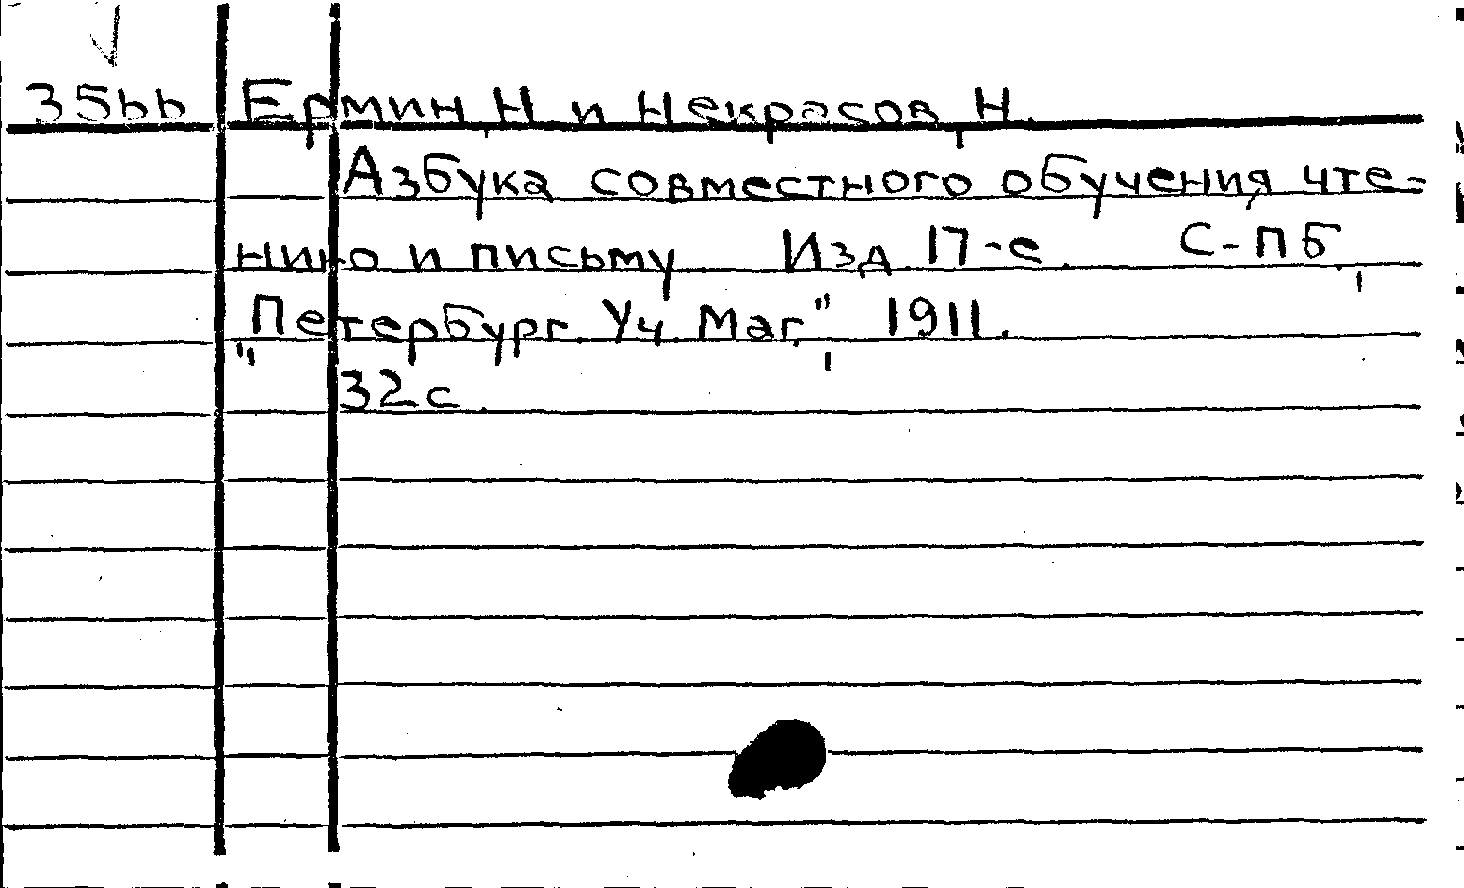 35bb Ермин, Н и Некрасов, Н.
Азбука совместного обучения чте-
нию и письму Изд. 17-е. С-ПБ,
"Петербург. Уч. Маг.", 1911.
32с.